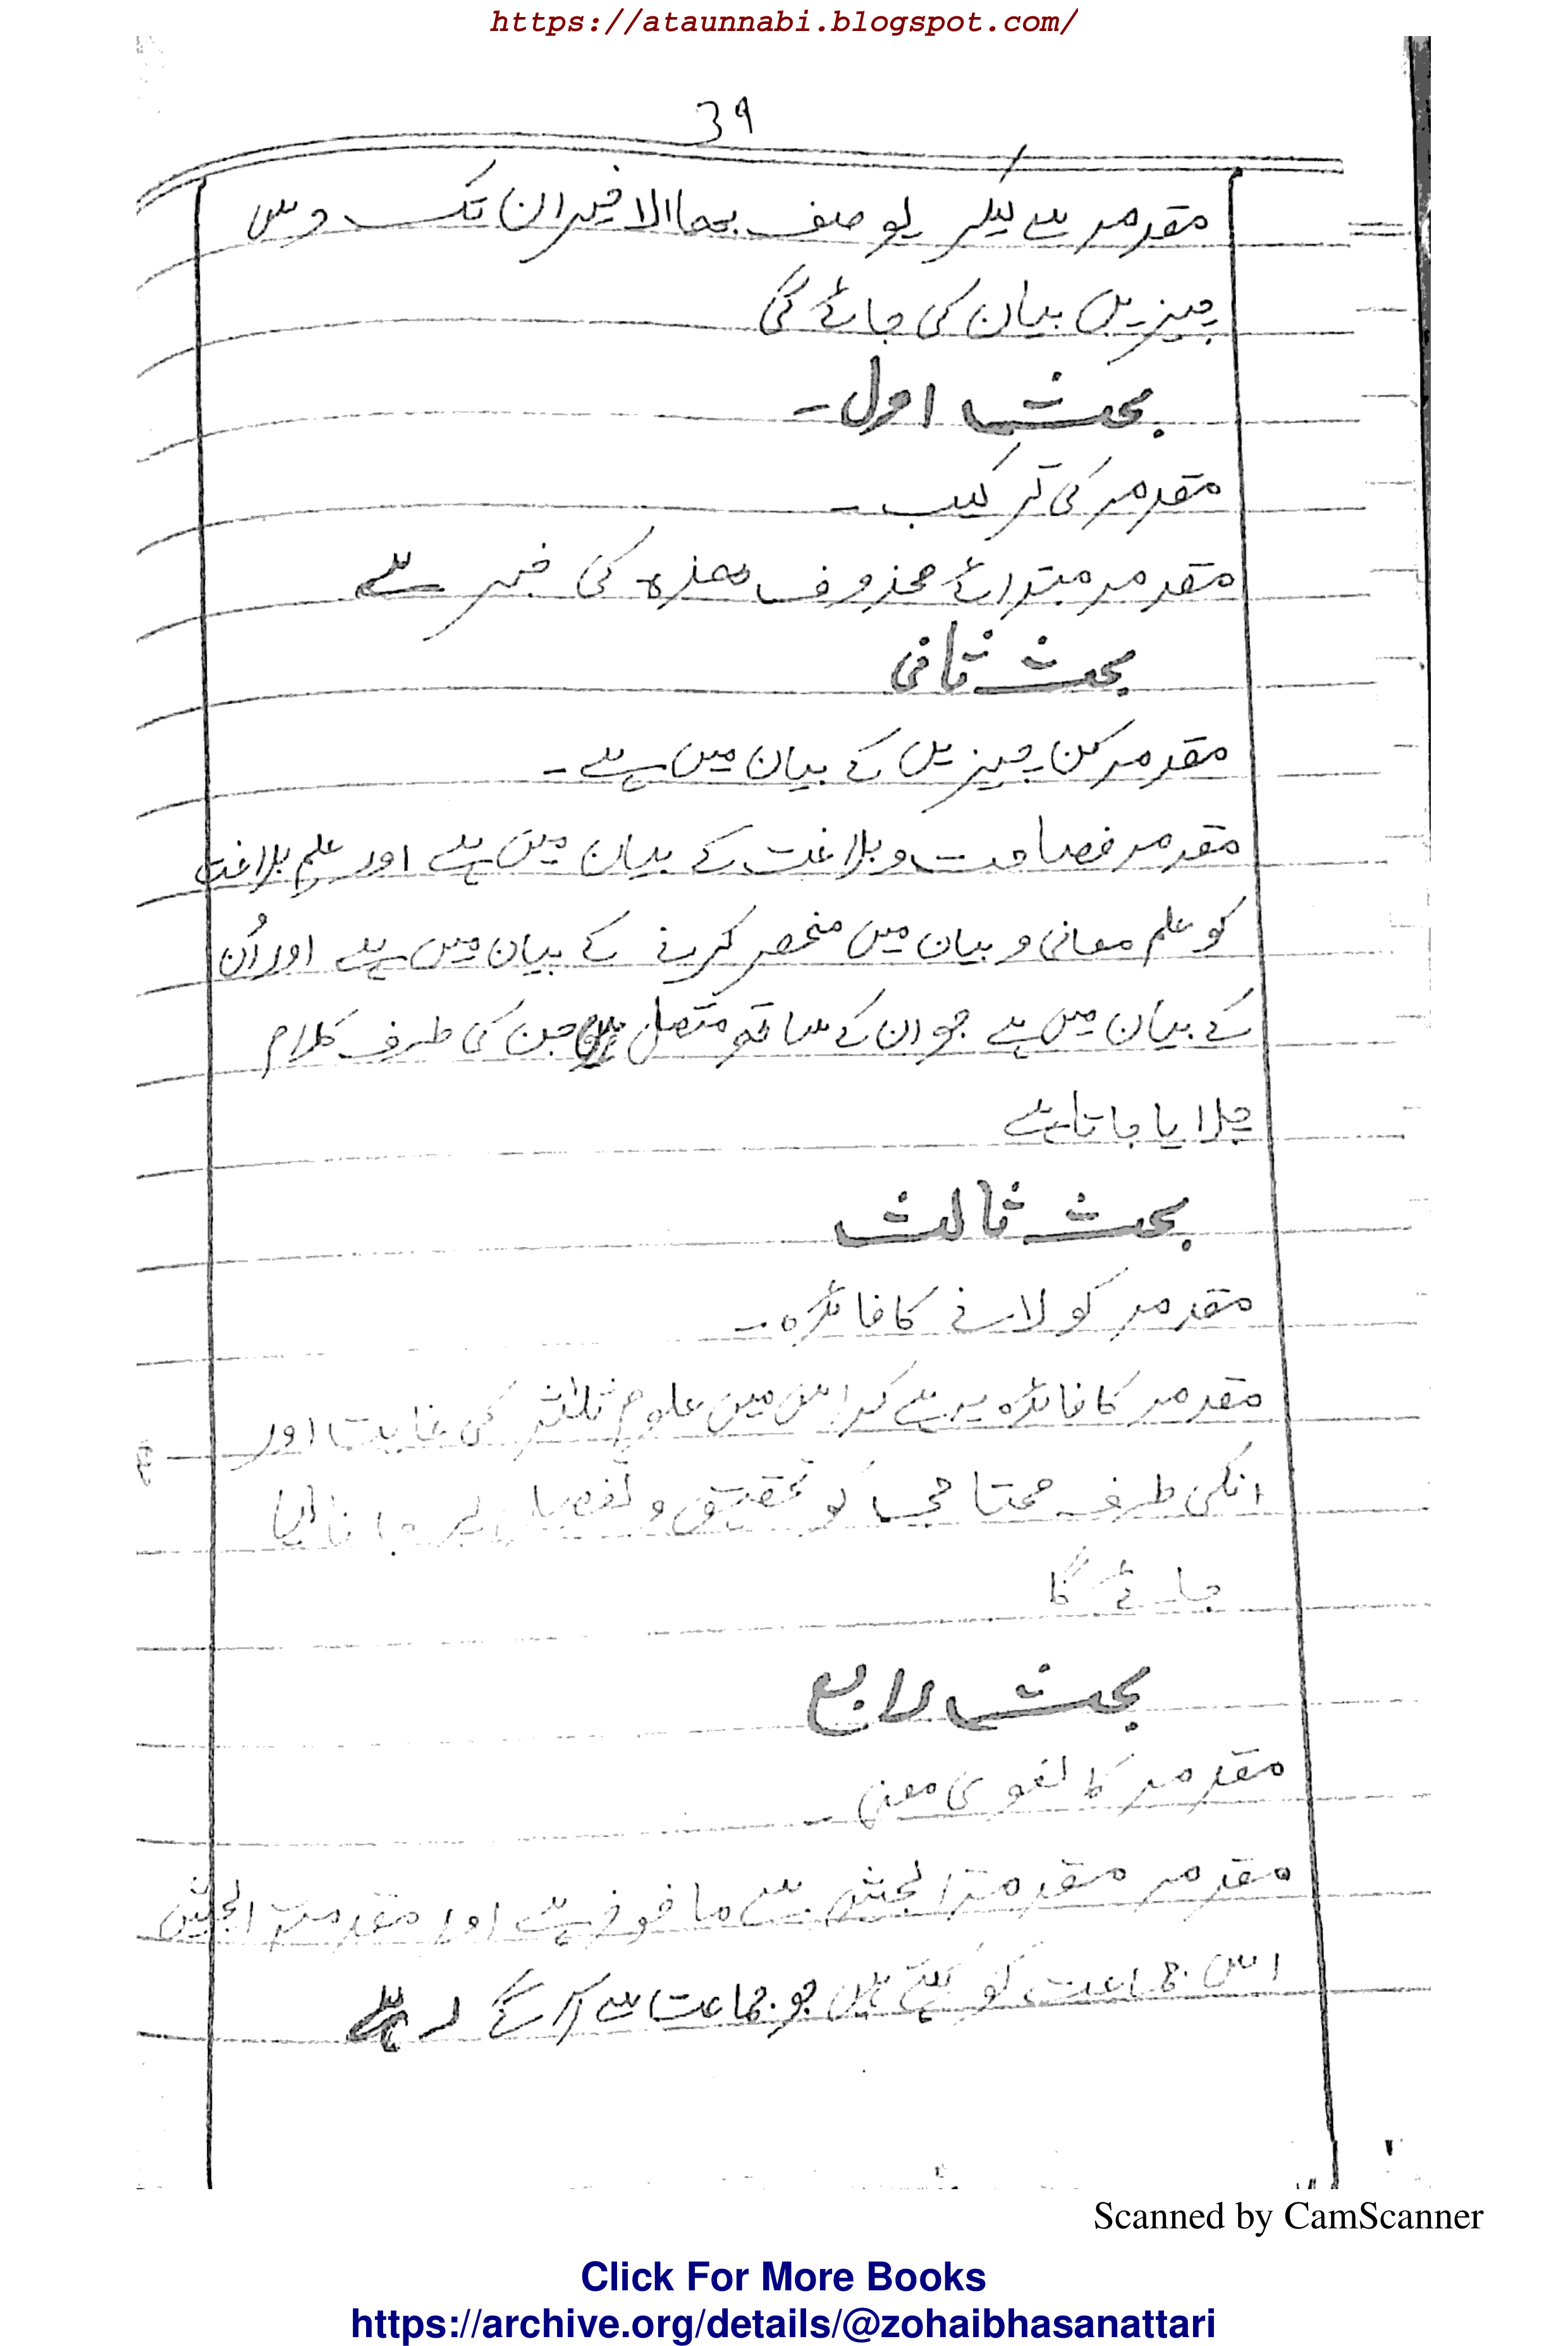 https://ataunnabi.blogspot.com/
39
مقدمہ سے لیکر یوصف بھما الاخیران تک دس
چیزیں بیان کی جائے گی
بحث اول۔
مقدمہ کی ترکیب۔
مقدمہ مبتدائے محذوف ھذہ کی خبر ہے
بحث ثانی
مقدمہ کن چیزیں کے بیان میں ہے۔
مقدمہ فصاحت و بلاغت کے بیان میں ہے اور علم بلاغت
کو علم معانی و بیان میں منحصر کرنے کے بیان میں ہے اور اُن
کے بیان میں ہے جو ان کے ساتھ متصل ہیں جن کی طرف کلام
چلایا جاتا ہے
بحث ثالث
مقدمہ کو لانے کا فائدہ۔
مقدمہ کا فائدہ یہ ہے کہ اس میں علوم ثلاثہ کی غایت اور
انکی طرف محتاجی کو تحقیق و تفصیل
جائے گا
بحث رابع
مقدمہ کا لغوی معنی۔
مقدمہ مقدمۃ الجیش سے ماخوذ ہے اور مقدمۃ الجیش
اس جماعت کو کہتے ہیں جو جماعت سے آگے رہے
Scanned by CamScanner
Click For More Books
https://archive.org/details/@zohaibhasanattari